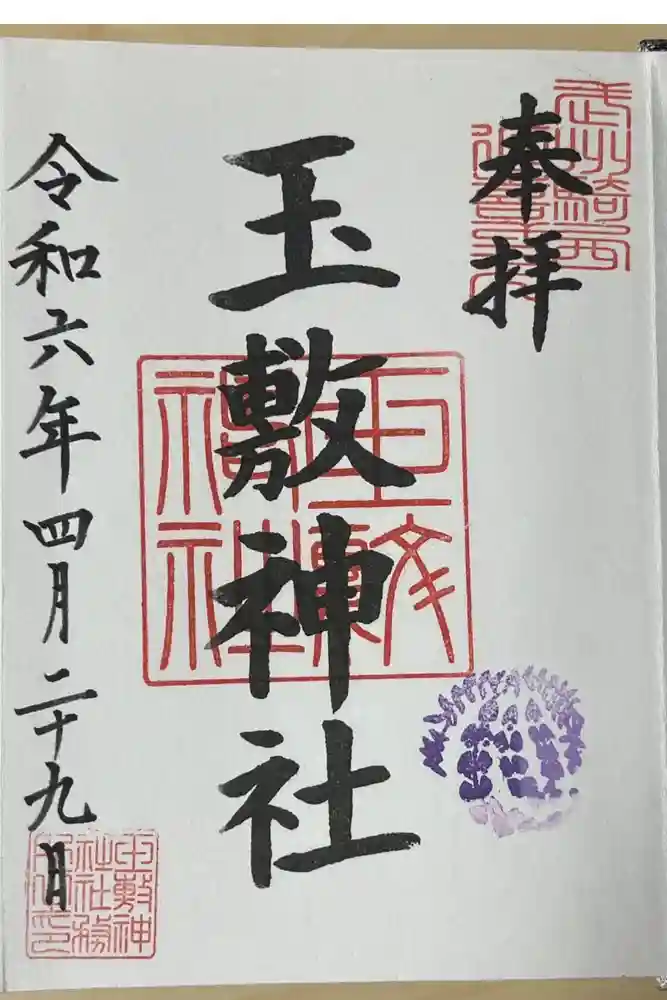 奉拝
玉敷神社
令和六年四月二十九日
玉敷神社
玉敷神社社務所印